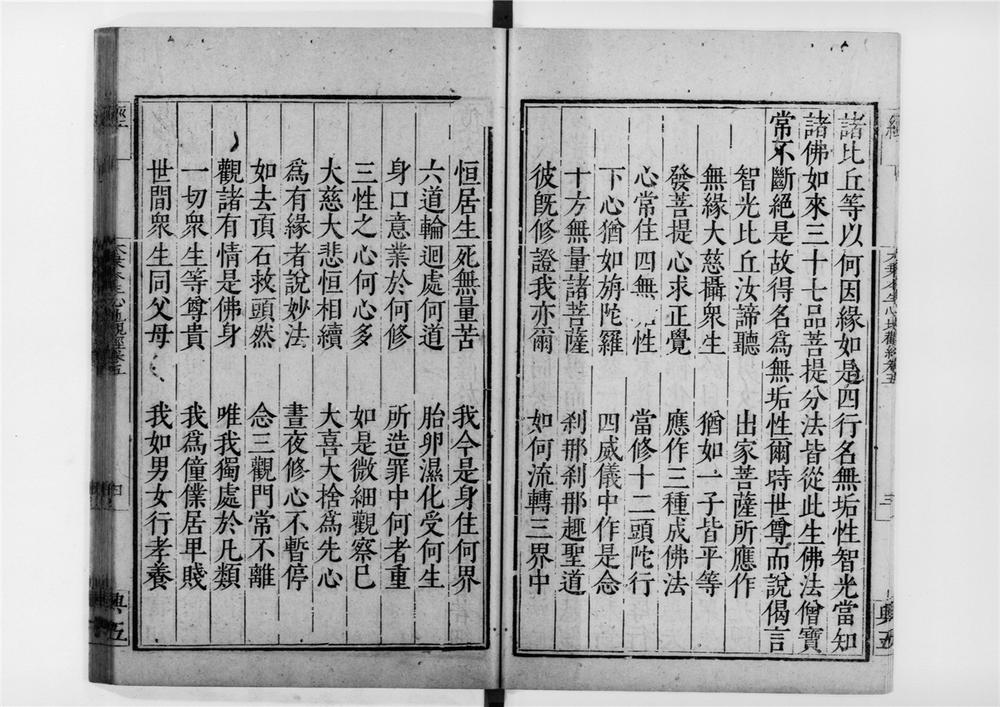 諸比丘等以何因緣如是四行名無垢性智光當知
諸佛如來三十七品菩提分法皆從此生佛法僧寶
常不斷絕是故得名爲無垢性爾時世尊而說偈言
智光比丘汝諦聽 出家菩薩所應作
無緣大慈攝衆生 猶如一子皆平等
發菩提心求正覺 應作三種成佛法
心常住四無 性 當修十二頭陀行
下心猶如旃陀羅 四威儀中作是念
十方無量諸菩薩 刹那刹那趣聖道
彼旣修證我亦爾 如何流轉三界中
恒居生死無量苦 我今是身住何界
六道輪迴處何道 胎卵濕化受何生
身口意業於何修 所造罪中何者重
三性之心何心多 如是微細觀察已
大慈大悲恒相續 大喜大捨爲先心
爲有緣者說妙法 晝夜修心不暫停
如去頂石救頭然 念三觀門常不離
觀諸有情是佛身 唯我獨處於凡類
一切衆生等尊貴 我爲僮僕居卑賤
世間衆生同父母 我如男女行孝養
大乘本生心地觀經卷五
三
興五
大乘本生心地觀經卷五
四
興五